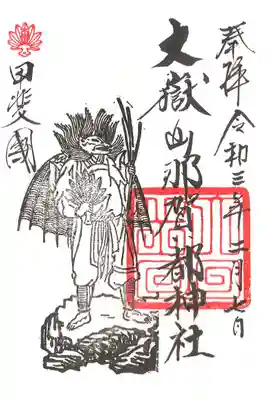 奉拝 令和三年二月七日
大嶽山那賀都神社
甲斐國